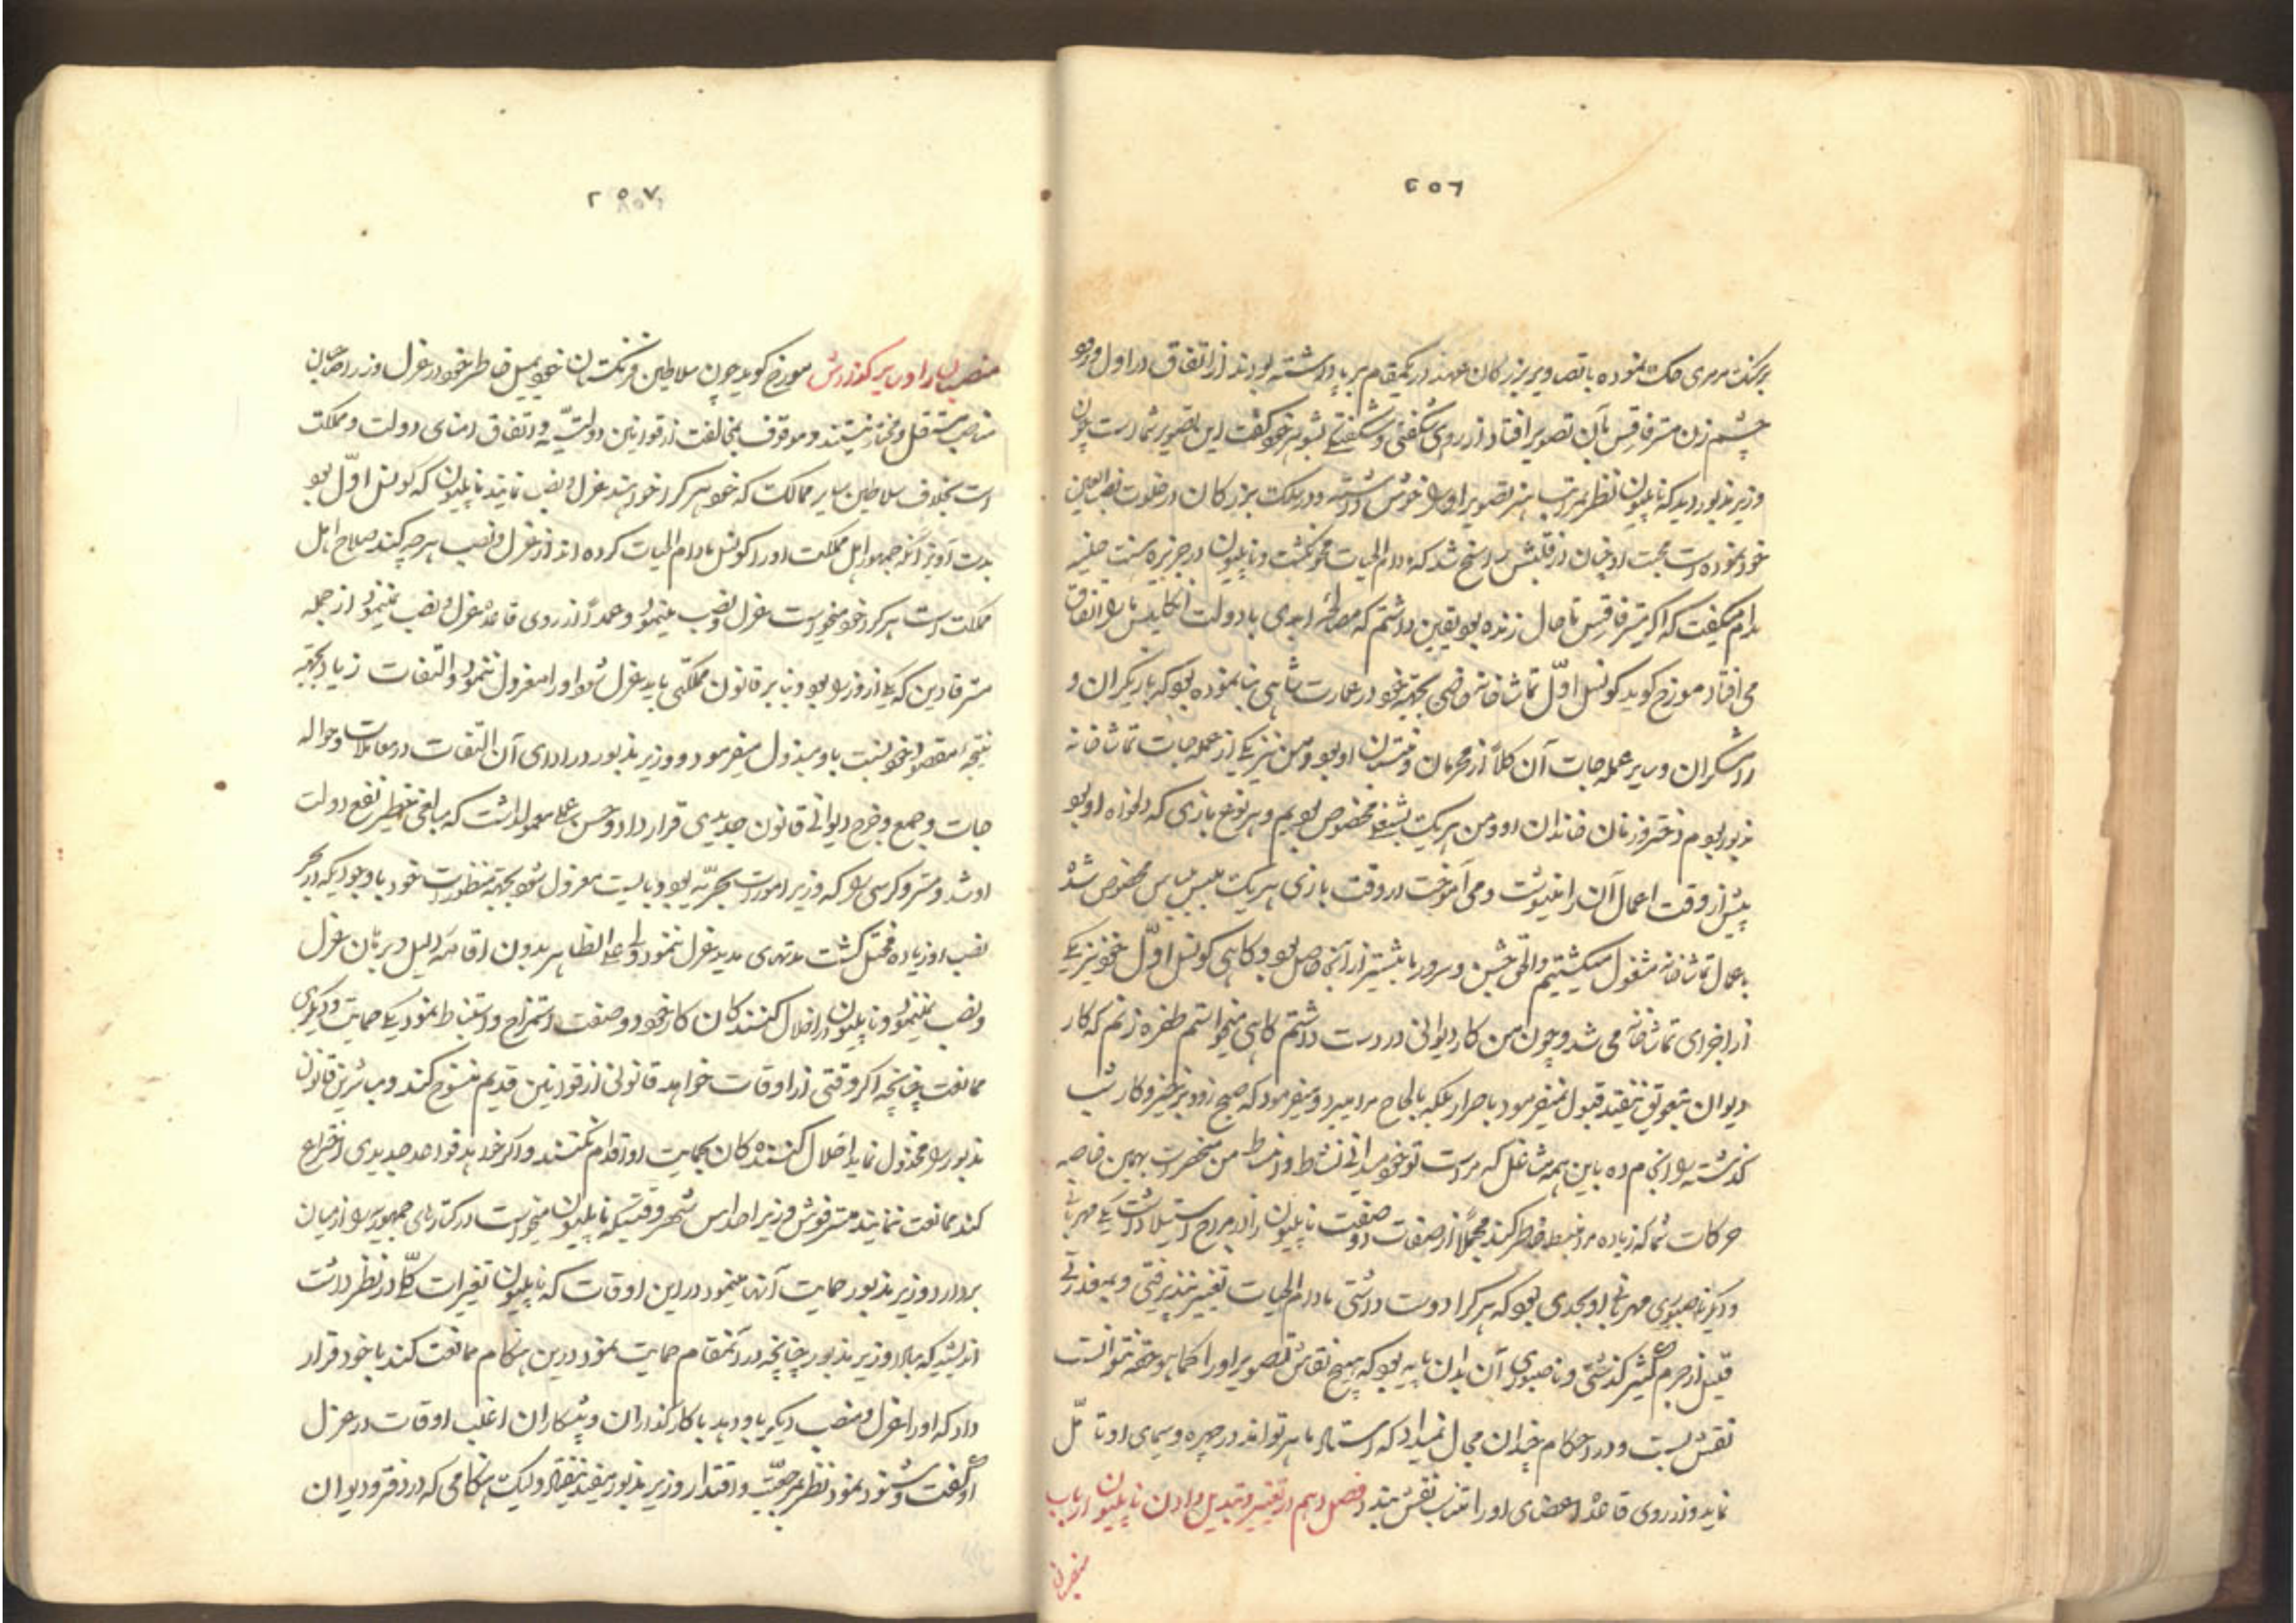 ۲۵۶
بر سنگ مرمری حک نموده با تصاویر بزرگان عهد در یکمقام برپا داشته بودند از اتفاق در اول مرور
چشم زن مستر فاقس بآن تصویر افتاد از روی شگفتی و شگفتگی بشوهر خود گفت این تصویر شماست چون
وزیر مذبور دید که ناپلیون نظر بمراتب هنر تصویر او را خوش داشته و در سلک بزرگان در خلوت نصب العین
خود نموده است محبت او چنان در قلبش راسخ شد که مادام الحیات محو نگشت و ناپلیون در جزیره سنت هلنه
مدام میگفت که اگر مستر فاقس تا حال زنده بود یقین داشتم که مصالحه ابدی با دولت انگلیس ما را اتفاق
می افتاد مورخ گوید کونسل اول تماشاخانه خاصی بجهة خود در عمارت شاهی بنا نموده بود که بازیگران و
رامشگران و سایر عمله جات آن کلاً از محرمان و منتسبان او بود و من نیز یکی از عمله جات تماشاخانه
مذبور بودم دختر و زنان خاندان او و من هر یک بشغلی مخصوص بودیم و هر نوع بازی که دلخواه او بود
پیش از وقت اعمال آن را مینوشت و می آموخت در وقت بازی هر یک ملبس بلباس مخصوص شده
باعمال تماشاخانه مشغول میگشتیم والحق جشن و سرور ما بیشتر از آنجا حاصل بود و گاهی کونسل اول خود نیز یکی
از اجزای تماشاخانه می شد و چون من کار دیوانی در دست داشتم گاهی میخواستم طفره زنم که کار
دیوان بتعویق نیفتد قبول نمیفرمود باصرار بلکه بالحاح مرا میبرد و میفرمود که صبح زود برخیز و کار شب
گذشته را انجام ده باین همه مشاغل که مراست تو خود میدانی نشاط و انبساط من منحصر است بهمین خاصه
حرکات شما که زیاده مرا منبسط خاطر کند مجملاً از صفات دو صفت ناپلیون را در مزاج استیلا داشت یکی مهربانی
و دیگر ناصبوری مهربانی او بحدی بود که هر کرا دوست داشتی مادام الحیات تغییر نپذیرفتی و بعد از
قلیل از جرم کثیر گذشتی و ناصبوری آن بدان پایه بود که هیچ نقاش تصویر او را کما هو حقه نتوانست
نقش بست و در احکام چندان مجال نمیداد که استاد ماهر تواند در چهره و سیمای او تأمل
نماید و از روی قاعده اعضای او را متناسب نقش بندد فصل دهم در تغییر و تبدیل دادن ناپلیون ارباب
منصبان
۲۵۷
منصبان را و سایر گذارش مورخ گوید چون سلاطین فرنگستان خود بمیل خاطر خود در عزل وزرا و صاحبان
مناصب مستقل و مختار نیستند و موقوف بمخالفت از قوانین دولتیه و اتفاق امنای دولت و مملکت
است بخلاف سلاطین سایر ممالک که خود هر کرا خواهند عزل و نصب نمایند ناپلیون که کونسل اول بود
بدست آویز آنکه جمهور اهل مملکت او را کونسل مادام الحیات کرده اند از عزل و نصب هر چه کند صلاح اهل
مملکت است هر کرا خود میخواست عزل و نصب مینمود و عمداً از روی قاعده عزل و نصب نمینمود از جمله
مستر قادین که یکی از وزرا بود و بنا بر قانون مملکتی باید عزل شود او را معزول ننمود و التفات زیاد بجهة
نتیجه مقصود خود نسبت باو مبذول میفرمود و وزیر مذبور در ادای آن التفات در معاملات و حواله
جات و جمع و خرج دیوانی قانون جدیدی قرار داد و حسن عملی معمول داشت که مبالغی خطیر نفع دولت
او شد و مستر وکرسی را که وزیر امورات بحریه بود و بایست معزول شود بجهة منظورات خود با وجودیکه امر بحر
نصب او زیاده مختل گشت مدتهای مدید عزل ننمود ولی علی الظاهر بدون اقامه دلیل و برهان عزل
و نصب نمینمود و ناپلیون از اخلال کنندگان کار خود دو صفت استخراج و استنباط نمود یکی حمایت و دیگری
ممانعت چنانچه اگر وقتی از اوقات خواهد قانونی از قوانین قدیم منسوخ کند و مباشرین قانون
مذبور را مخذول نماید اخلال کنندگان بحمایت او اقدام نکنند و اگر خواهد قواعد جدیدی اختراع
کند ممانعت ننمایند مستر فوش وزیر احداس شهر وقتیکه ناپلیون میخواست در کتاره‌ای جمهوریه را از میان
بردارد وزیر مذبور حمایت آنها مینمود در این اوقات که ناپلیون تغییرات کلی در نظر داشت
اندیشید که مبادا وزیر مذبور چنانچه در آنمقام حمایت نمود درین هنگام ممانعت کند با خود قرار
داد که او را عزل و منصب دیگر باو دهد با کارگذاران و پیشکاران اغلب اوقات در عزل
او گفت و شنود نمود نظر بمرجعیت و اقتدار وزیر مذبور مفید نیفتاد و لیک هنگامی که در دفتر و دیوان